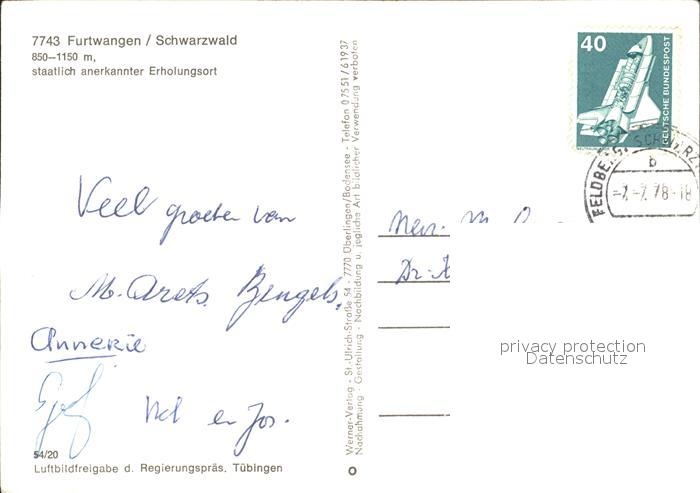 7743 Furtwangen / Schwarzwald
850—1150 m,
staatlich anerkannter Erholungsort
Veel groeten van
M. Arets. Bengels.
Annerie
en Jos.
54/20
Luftbildfreigabe d. Regierungspräs. Tübingen
Werner-Verlag - St.-Ulrich-Straße 54 - 7770 Überlingen/Bodensee - Telefon 07551/61937
Nachahmung - Gestaltung - Nachbildung u. jegliche Art bildlicher Verwendung verboten
40
DEUTSCHE BUNDESPOST
FELDBERG, SCHWARZW
b
-7.-7.78-18
privacy protection
Datenschutz